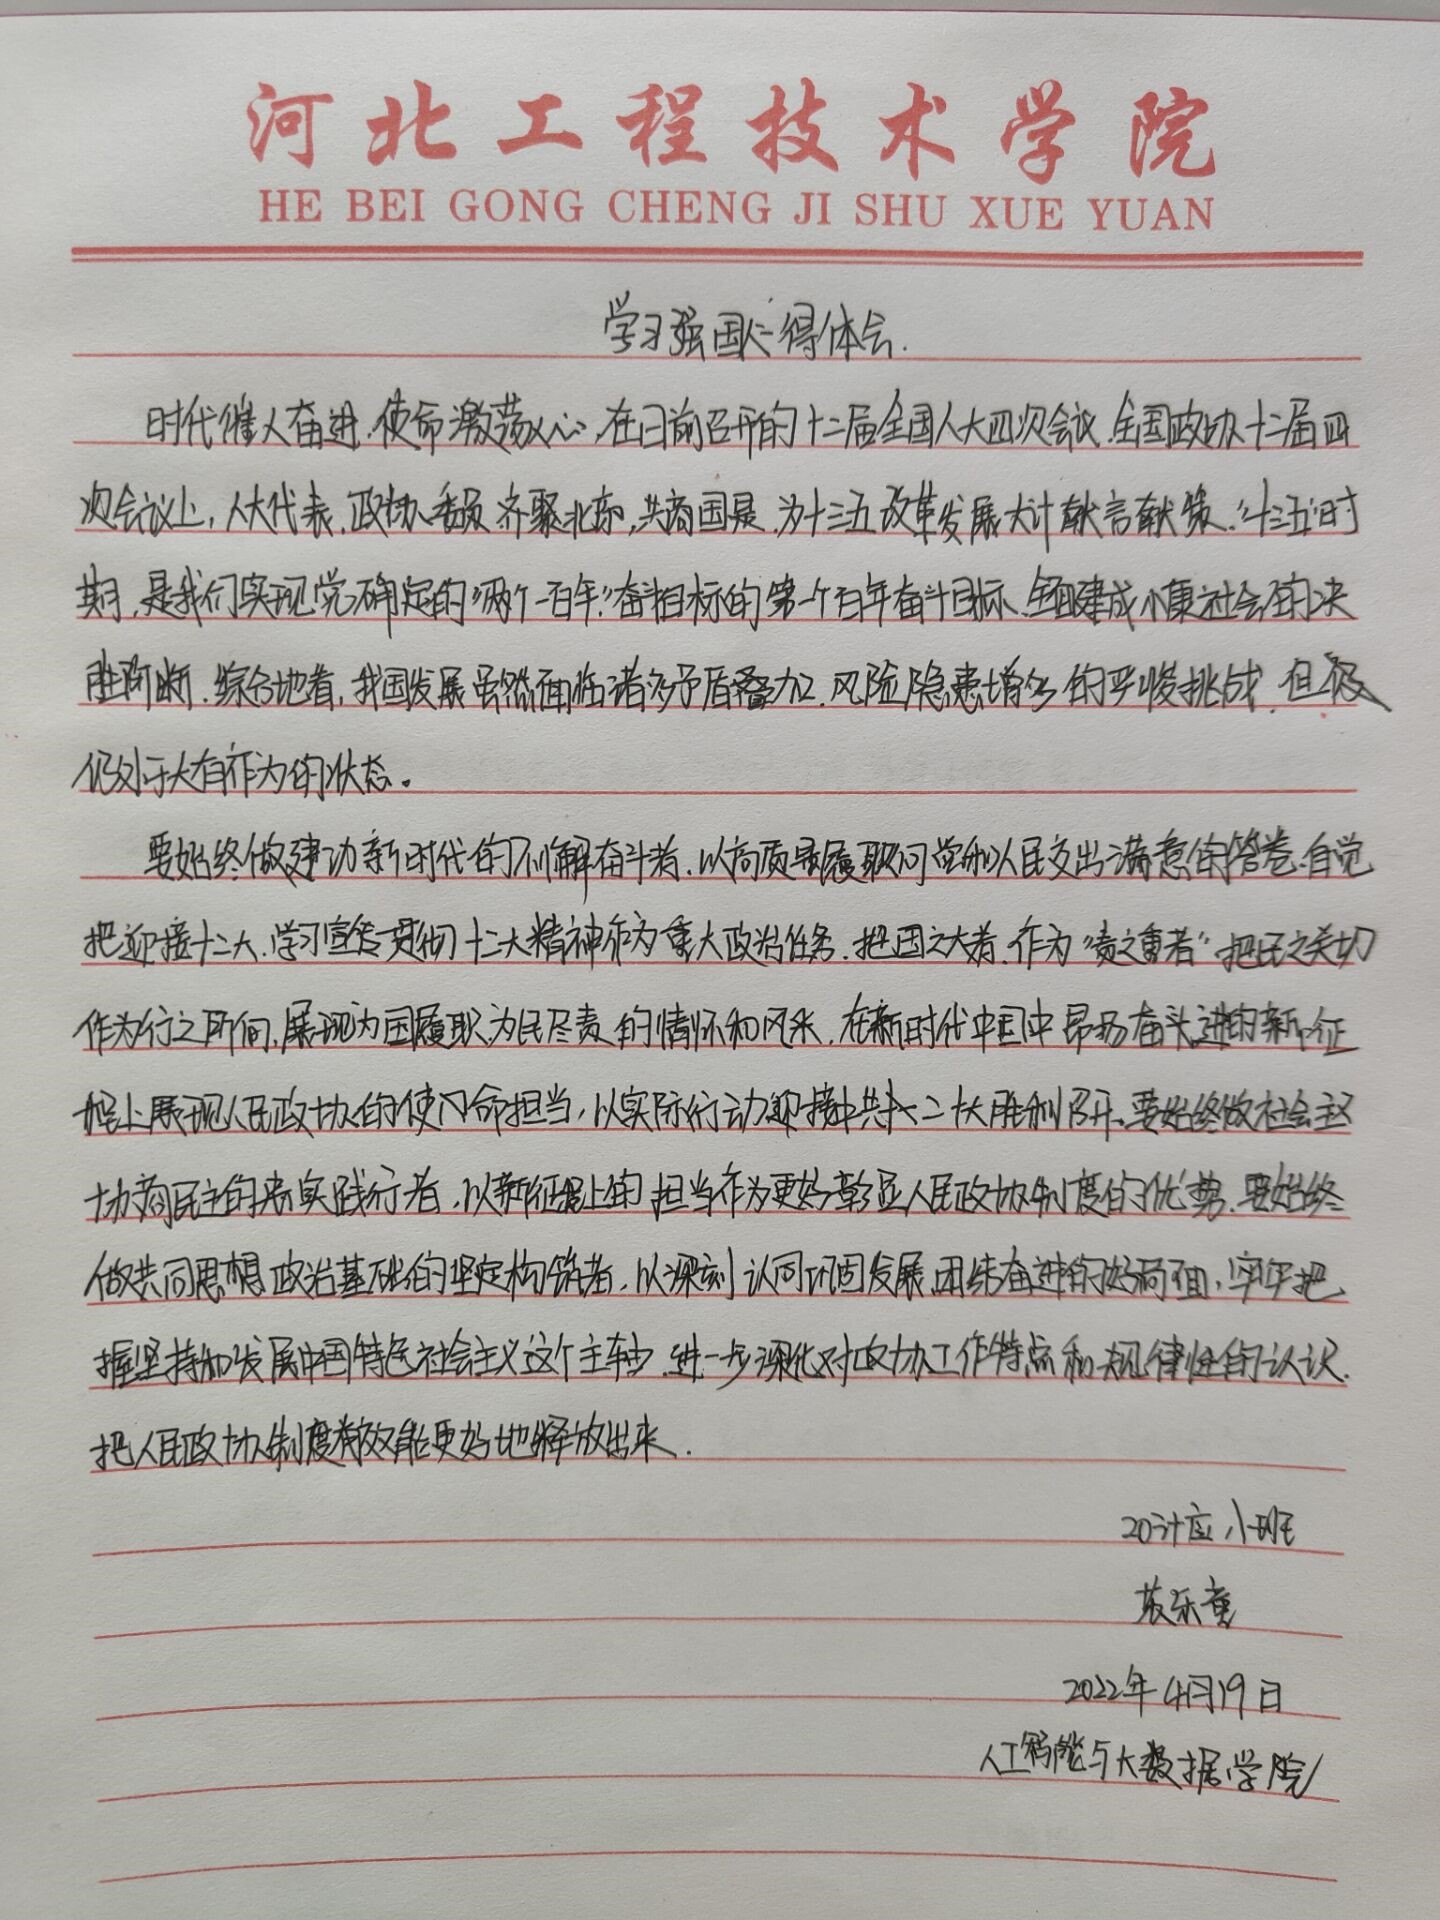 河北工程技术学院
HE BEI GONG CHENG JI SHU XUE YUAN
学习强国心得体会.
时代催人奋进,使命激荡人心,在日前召开的十二届全国人大四次会议,全国政协十二届四
次会议上,人大代表,政协委员齐聚北京,共商国是,为十三五改革发展大计献言献策."十三五"时
期,是我们实现党确定的"两个一百年"奋斗目标的第一个百年奋斗目标、全面建成小康社会的决
胜阶断.综合地看,我国发展虽然面临诸多矛盾叠加,风险隐患增多的严峻挑战,但
仍处于大有作为的状态。
要始终做建功新时代的不懈奋斗者,以高质量履职向党和人民交出满意的答卷.自觉
把迎接十二大,学习宣传贯彻十二大精神作为重大政治任务.把国之大者,作为"责之重者"把民之关切
作为行之所向,展现为国履职,为民尽责的情怀和风采,在新时代中国中昂扬奋头进的新征
程上展现人民政协的使命担当,以实际行动迎接中共十二大胜利召开.要始终做社会主义
协商民主的忠实践行者,以新征程上的担当作为更好彰显人民政协制度的优势.要始终
做共同思想政治基础的坚定构筑者,以深刻认同巩固发展团结奋进的好局面,牢牢把
握坚持和发展中国特色社会主义这个主轴,进一步深化对政协工作特点和规律性的认识.
把人民政协制度有效效能更好地释放出来.
20计应小班
乐童
2022年4月19日
人工智能与大数据学院